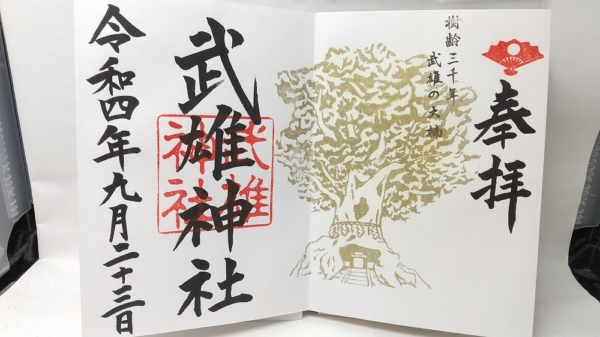 奉拝
樹齢三千年
武雄の大楠
武雄神社
武雄
神社
令和四年九月二十三日